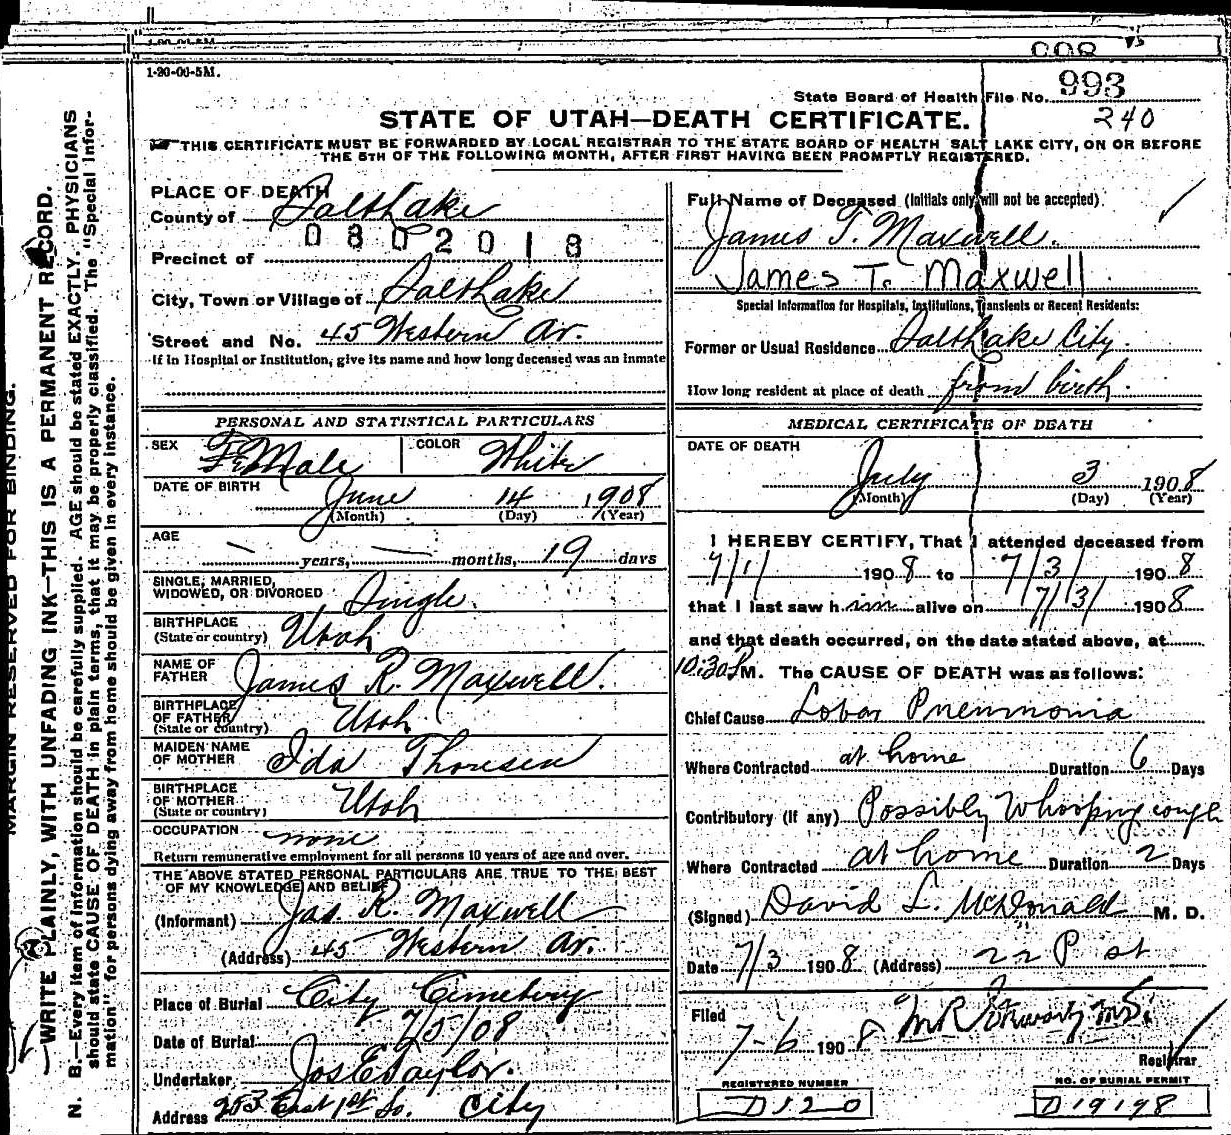 1-20-06-5M.
State Board of Health File No. 993
240
STATE OF UTAH—DEATH CERTIFICATE.
THIS CERTIFICATE MUST BE FORWARDED BY LOCAL REGISTRAR TO THE STATE BOARD OF HEALTH SALT LAKE CITY, ON OR BEFORE
THE 5TH OF THE FOLLOWING MONTH, AFTER FIRST HAVING BEEN PROMPTLY REGISTERED.
MARGIN RESERVED FOR BINDING.
WRITE PLAINLY, WITH UNFADING INK—THIS IS A PERMANENT RECORD.
N. B.—Every item of information should be carefully supplied. AGE should be stated EXACTLY. PHYSICIANS
should state CAUSE OF DEATH in plain terms, that it may be properly classified. The "Special Infor-
mation" for persons dying away from home should be given in every instance.
PLACE OF DEATH
County of Salt Lake
0802018
Precinct of
City, Town or Village of Salt Lake
Street and No. 45 Western Av.
If in Hospital or Institution, give its name and how long deceased was an inmate
PERSONAL AND STATISTICAL PARTICULARS
SEX Male COLOR White
DATE OF BIRTH June 14 1908
(Month) (Day) (Year)
AGE
— years, — months, 19 days
SINGLE, MARRIED,
WIDOWED, OR DIVORCED Single.
BIRTHPLACE
(State or country) Utah
NAME OF
FATHER James R. Maxwell.
BIRTHPLACE
OF FATHER
(State or country) Utah
MAIDEN NAME
OF MOTHER Ida Thoresen
BIRTHPLACE
OF MOTHER
(State or country) Utah
OCCUPATION none
Return remunerative employment for all persons 10 years of age and over.
THE ABOVE STATED PERSONAL PARTICULARS ARE TRUE TO THE BEST
OF MY KNOWLEDGE AND BELIEF
(Informant) Jas. R. Maxwell
(Address) 45 Western Av.
Place of Burial City Cemetery
Date of Burial 7/5/08
Undertaker Jos E Taylor.
Address 253 East 1st So. City
Full Name of Deceased (Initials only will not be accepted)
James T. Maxwell.
James T. Maxwell
Special Information for Hospitals, Institutions, Transients or Recent Residents:
Former or Usual Residence Salt Lake City.
How long resident at place of death from birth.
MEDICAL CERTIFICATE OF DEATH
DATE OF DEATH
July 3 1908
(Month) (Day) (Year)
I HEREBY CERTIFY, That I attended deceased from
7/1/ 1908 to 7/3/ 1908
that I last saw him alive on 7/3/ 1908
and that death occurred, on the date stated above, at
10:30 P M. The CAUSE OF DEATH was as follows:
Chief Cause Lobar Pneumonia
Where Contracted at home Duration 6 Days
Contributory (If any) Possibly Whooping cough
Where Contracted at home Duration 2 Days
(Signed) David L. McDonald M. D.
Date 7/3 1908 (Address) 22 P st
Filed
7-6 1908
Registrar
REGISTERED NUMBER
D120
NO. OF BURIAL PERMIT
D19198